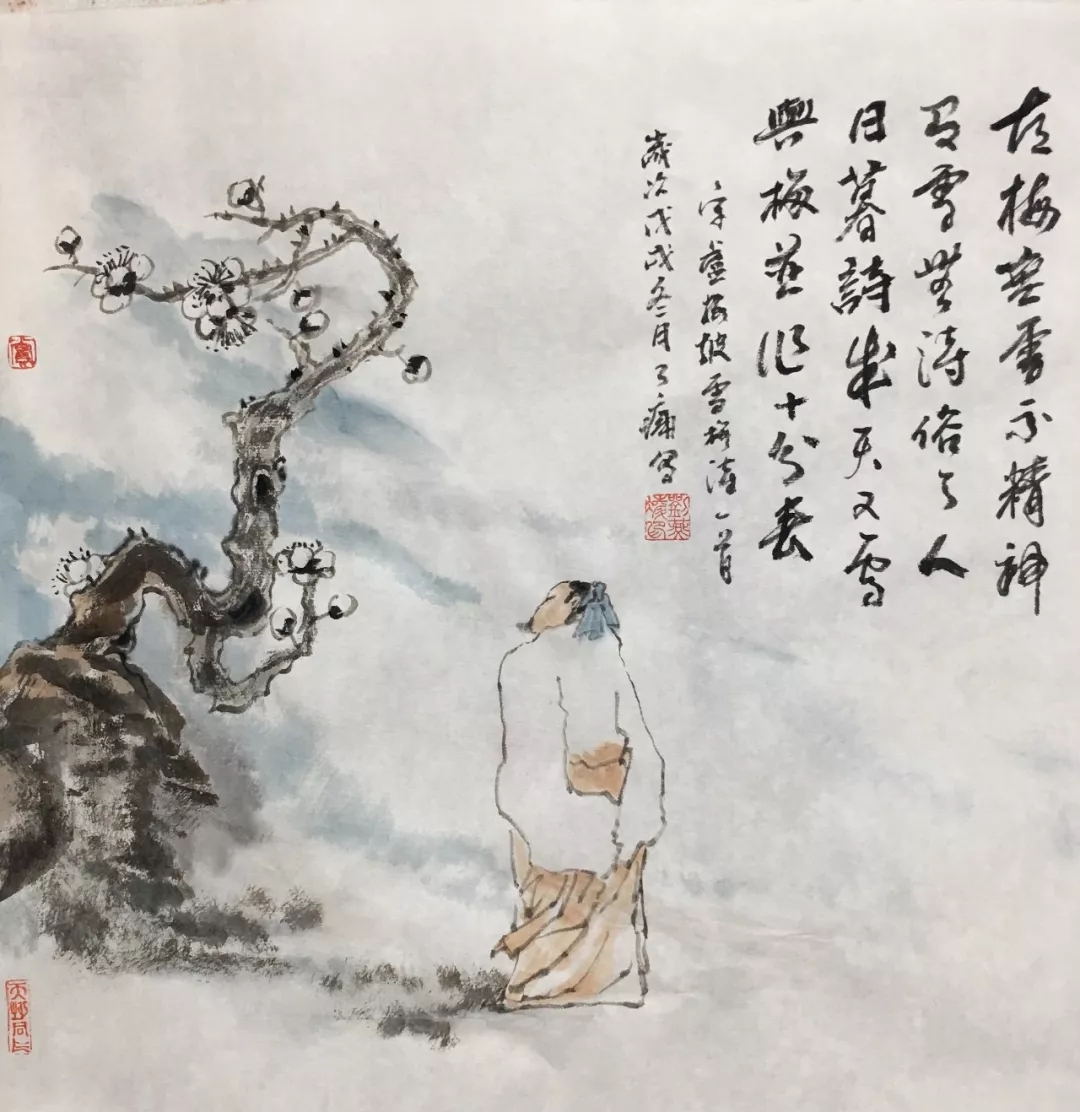 有梅無雪不精神
有雪無詩俗了人
日暮詩成天又雪
與梅並作十分春
宋盧梅坡雪梅詩一首
歲次戊戌冬月了寫